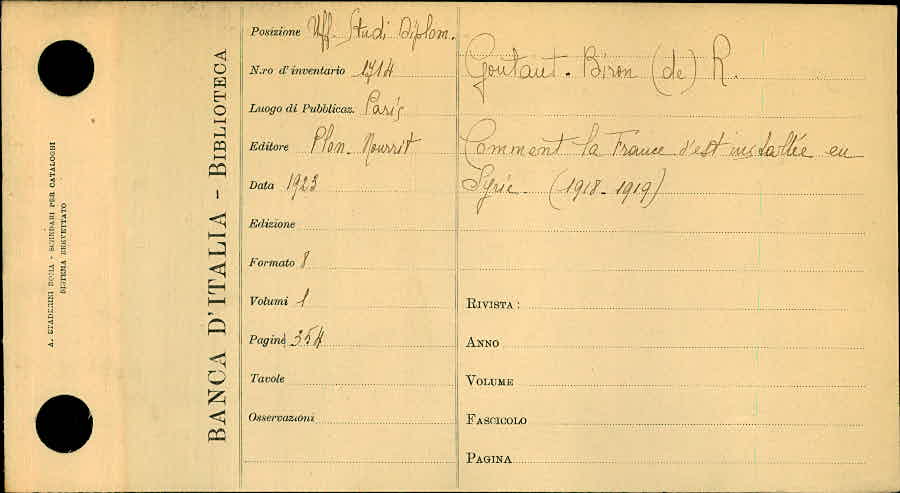 A. STADERINI ROMA - SCHEDARI PER CATALOGHI
SISTEMA BREVETTATO
BANCA D'ITALIA - BIBLIOTECA
Posizione Uff. Studi Diplom.
N.ro d'inventario 1714
Luogo di Pubblicaz. Paris
Editore Plon. Nourrit
Data 1923
Edizione
Formato 8
Volumi 1
Pagine 354
Tavole
Osservazioni
Goutaut-Biron (de) R.
Comment la France s'est installée en
Syrie. (1918-1919)
RIVISTA:
ANNO
VOLUME
FASCICOLO
PAGINA